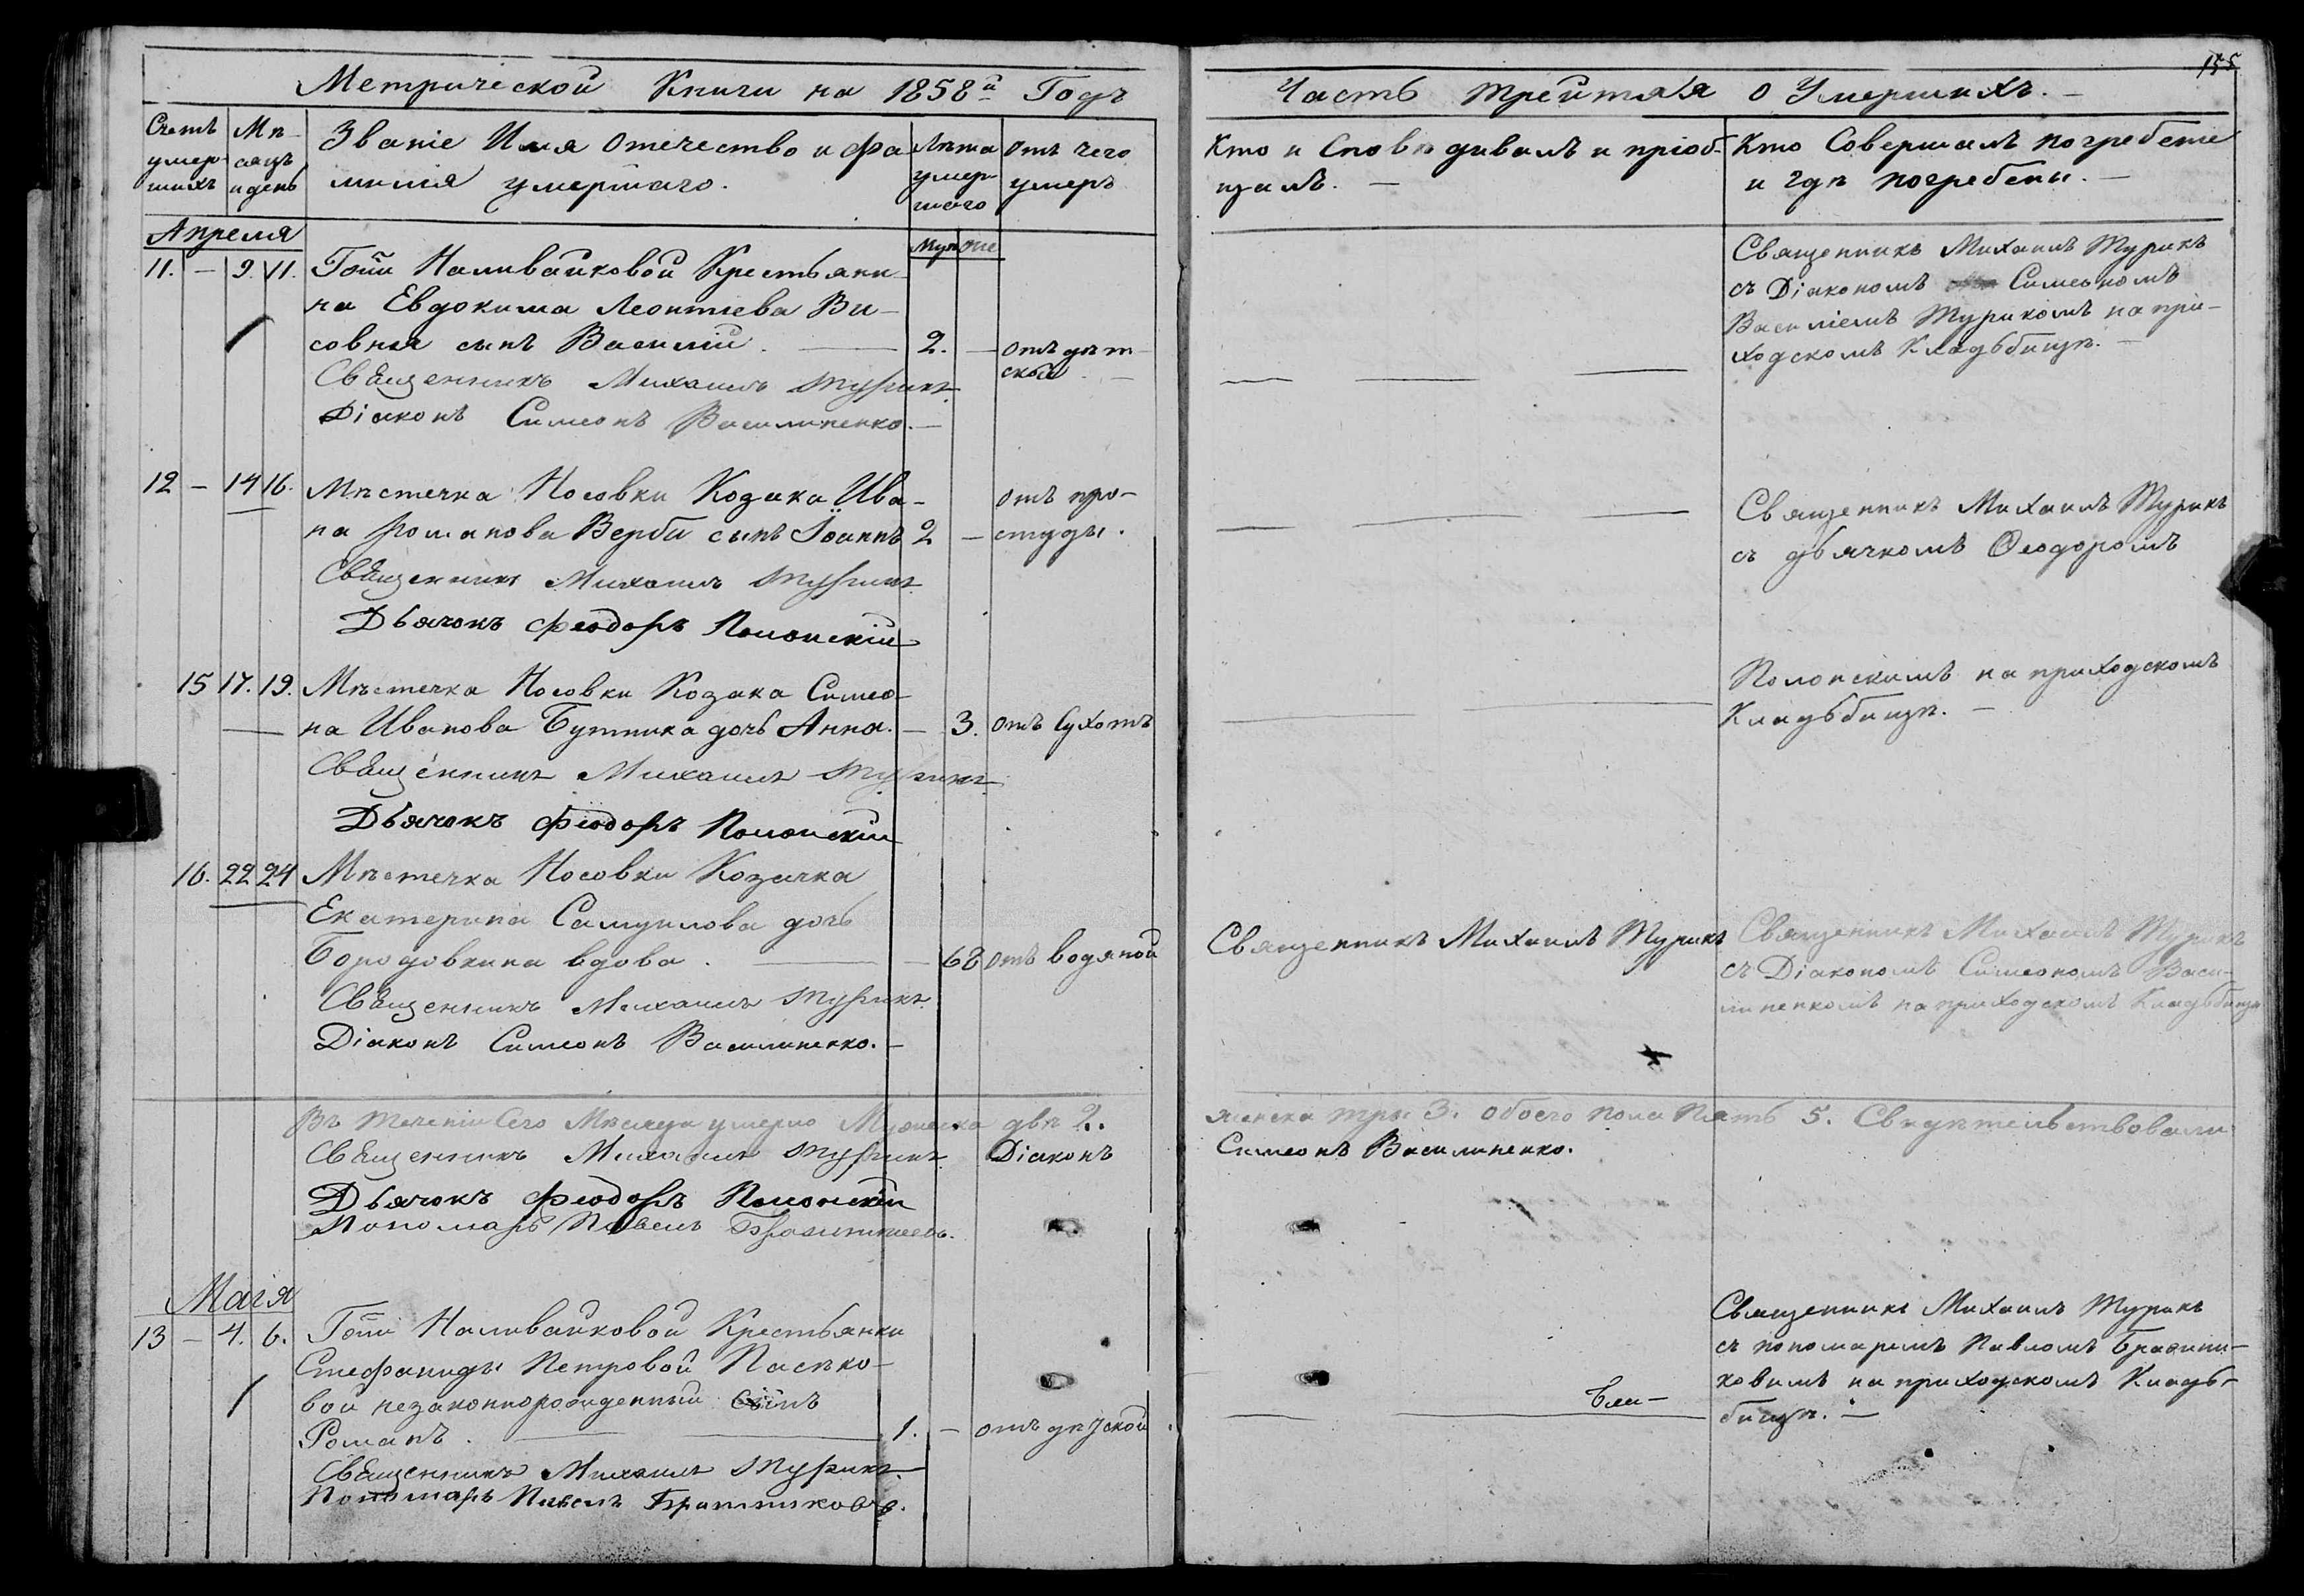 Метрической Книги на 1858й Годъ
Счетъ умершихъ
Мѣсяцъ и день
Званіе Имя Отечество и фамилія умершаго.
Лѣта умершаго
Отъ чего умеръ
Апреля
Муж Же
11. — 9. 11. Гопи Наливайковой Крестьяни-
на Евдокима Леонтіева Ви-
совня сынъ Василій. — 2. — отъ дѣт-
ской —
Священникъ Михаилъ Турикъ
Діаконъ Симеонъ Василиненко. —
12 — 14 16. Мѣстечка Носовки Козака Ива- отъ про-
на Романова Верби сынъ Іоаннъ 2 — студы.
Священникъ Михаилъ Турикъ
Дьячокъ Феодоръ Полонскій
15 17. 19. Мѣстечка Носовки Козака Симео-
на Иванова Бутника дочь Анна. — 3. отъ Сухотъ
Священникъ Михаилъ Турикъ
Дьячокъ Феодоръ Полонскій
16. 22 24 Мѣстечка Носовки Козачка
Екатерина Самуилова дочь
Бородовкина вдова. — 68 отъ водяной
Священникъ Михаилъ Турикъ
Діаконъ Симеонъ Василиненко. —
Въ теченіи Сего Мѣсяца умерло Мужеска двѣ 2.
Священникъ Михаилъ Турикъ Діаконъ
Дьячокъ Феодоръ Полонскій
Пономарь Павелъ
Маія
13 — 4. 6. Гопи Наливайковой Крестьянки
Стефаниды Петровой Пасѣко-
вой незаконнорожденный Сынъ
Романъ. — 1. — отъ дѣтской.
Священникъ Михаилъ Турикъ
Пономарь Павелъ
155
Часть Трейтяя о Умершихъ. —
Кто исповѣдивалъ и пріоб-
щалъ. —
Кто Совершалъ погребеніе
и гдѣ погребены. —
Священникъ Михаилъ Турикъ
съ Діакономъ Симеономъ
Василіемъ Турикомъ на при-
ходскомъ Кладьбищѣ. —
Священникъ Михаилъ Турикъ
съ дьячкомъ Феодоромъ
Полонскимъ на приходскомъ
Кладьбищѣ. —
Священникъ Михаилъ Турикъ
Священникъ Михаилъ Турикъ
съ Діакономъ Симеономъ Васи-
линенкомъ на приходскомъ Кладьбищѣ
женска три 3. обоего пола Пять 5. Свидѣтельствовали
Симеонъ Василиненко.
Священникъ Михаилъ Турикъ
съ пономаремъ Павломъ Бражни-
ковимъ на приходскомъ Кладь-
бищѣ. —